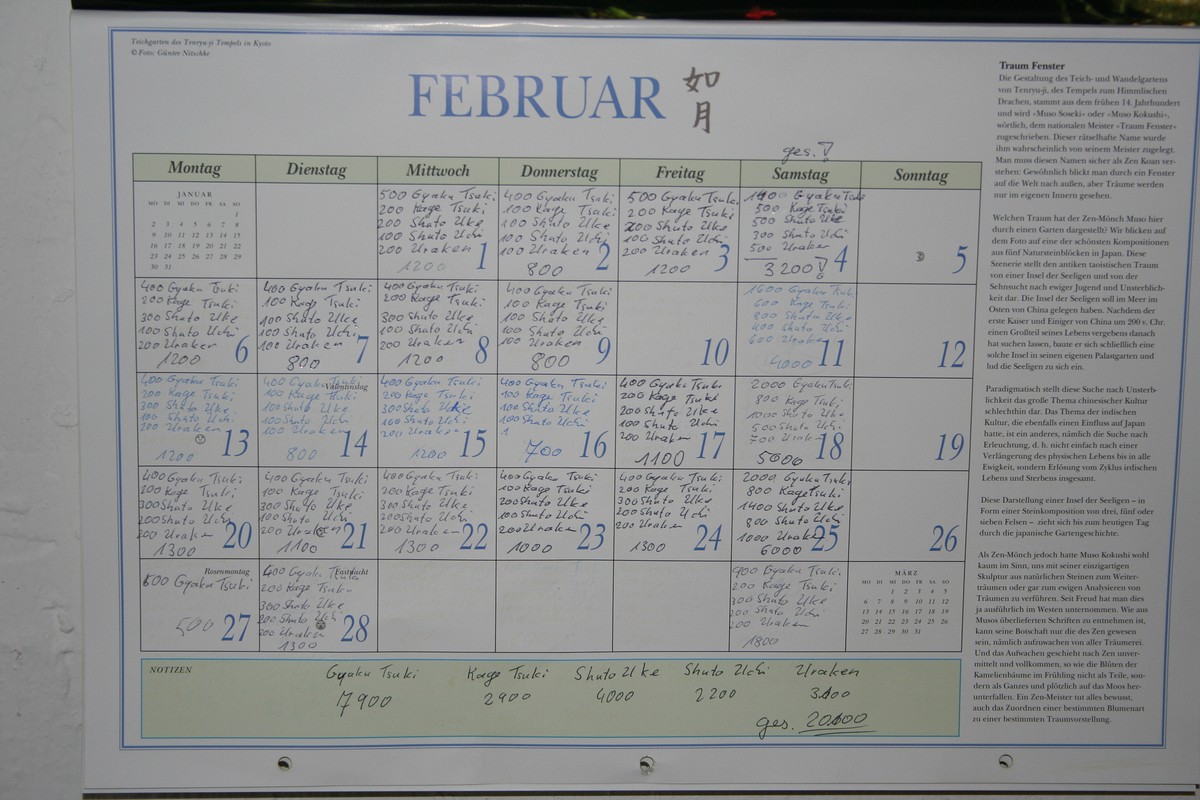 Teichgarten des Tenryu-ji Tempels in Kyoto
© Foto: Günter Nitschke
FEBRUAR 如月
ges.!
Montag Dienstag Mittwoch Donnerstag Freitag Samstag Sonntag
JANUAR
MO DI MI DO FR SA SO
1
2 3 4 5 6 7 8
9 10 11 12 13 14 15
16 17 18 19 20 21 22
23 24 25 26 27 28 29
30 31
500 Gyaku Tsuki
200 Kage Tsuki
200 Shuto Uke
100 Shuto Uchi
200 Uraken
1200
1
400 Gyaku Tsuki
100 Kage Tsuki
100 Shuto Uke
100 Shuto Uchi
100 Uraken
800
2
500 Gyaku Tsuki
200 Kage Tsuki
200 Shuto Uke
100 Shuto Uchi
200 Uraken
1200
3
Gyaku Tsuki
500 Kage Tsuki
500 Shuto Uke
300 Shuto Uchi
500 Uraken
3200!
4
5
400 Gyaku Tsuki
200 Kage Tsuki
300 Shuto Uke
100 Shuto Uchi
200 Uraken
1200
6
400 Gyaku Tsuki
100 Kage Tsuki
100 Shuto Uke
100 Shuto Uchi
100 Uraken
800
7
400 Gyaku Tsuki
200 Kage Tsuki
300 Shuto Uke
100 Shuto Uchi
200 Uraken
1200
8
400 Gyaku Tsuki
100 Kage Tsuki
100 Shuto Uke
100 Shuto Uchi
100 Uraken
800
9
10
1600 Gyaku Tsuki
600 Kage Tsuki
800 Shuto Uke
400 Shuto Uchi
600 Uraken
4000
11
12
400 Gyaku Tsuki
200 Kage Tsuki
300 Shuto Uke
100 Shuto Uchi
200 Uraken
1200
13
Valentinstag
400 Gyaku Tsuki
100 Kage Tsuki
100 Shuto Uke
100 Shuto Uchi
100 Uraken
800
14
400 Gyaku Tsuki
200 Kage Tsuki
300 Shuto Uke
100 Shuto Uchi
200 Uraken
1200
15
400 Gyaku Tsuki
100 Kage Tsuki
100 Shuto Uke
100 Shuto Uchi
1
700
16
400 Gyaku Tsuki
200 Kage Tsuki
200 Shuto Uke
100 Shuto Uchi
200 Uraken
1100
17
2000 Gyaku Tsuki
800 Kage Tsuki
1000 Shuto Uke
500 Shuto Uchi
700 Uraken
5000
18
19
400 Gyaku Tsuki
200 Kage Tsuki
300 Shuto Uke
200 Shuto Uchi
200 Uraken
1300
20
400 Gyaku Tsuki
100 Kage Tsuki
300 Shuto Uke
100 Shuto Uchi
200 Uraken
1100
21
400 Gyaku Tsuki
200 Kage Tsuki
300 Shuto Uke
200 Shuto Uchi
200 Uraken
1300
22
400 Gyaku Tsuki
100 Kage Tsuki
200 Shuto Uke
100 Shuto Uchi
200 Uraken
1000
23
400 Gyaku Tsuki
200 Kage Tsuki
300 Shuto Uke
200 Shuto Uchi
200 Uraken
1300
24
2000 Gyaku Tsuki
800 Kage Tsuki
1400 Shuto Uke
800 Shuto Uchi
1000 Uraken
6000
25
26
Rosenmontag
500 Gyaku Tsuki
500
27
Fastnacht
400 Gyaku Tsuki
200 Kage Tsuki
300 Shuto Uke
200 Shuto Uchi
200 Uraken
1300
28
900 Gyaku Tsuki
200 Kage Tsuki
300 Shuto Uke
200 Shuto Uchi
200 Uraken
1800
MÄRZ
MO DI MI DO FR SA SO
1 2 3 4 5
6 7 8 9 10 11 12
13 14 15 16 17 18 19
20 21 22 23 24 25 26
27 28 29 30 31
NOTIZEN
Gyaku Tsuki Kage Tsuki Shuto Uke Shuto Uchi Uraken
7900 2900 4000 2200
ges.
Traum Fenster
Die Gestaltung des Teich- und Wandelgartens
von Tenryu-ji, des Tempels zum Himmlischen
Drachen, stammt aus dem frühen 14. Jahrhundert
und wird »Muso Soseki« oder »Muso Kokushi«,
wörtlich, dem nationalen Meister »Traum Fenster«
zugeschrieben. Dieser rätselhafte Name wurde
ihm wahrscheinlich von seinem Meister zugelegt.
Man muss diesen Namen sicher als Zen Koan ver-
stehen: Gewöhnlich blickt man durch ein Fenster
auf die Welt nach außen, aber Träume werden
nur im eigenen Innern gesehen.
Welchen Traum hat der Zen-Mönch Muso hier
durch einen Garten dargestellt? Wir blicken auf
dem Foto auf eine der schönsten Kompositionen
aus fünf Natursteinblöcken in Japan. Diese
Szenerie stellt den antiken taoistischen Traum
von einer Insel der Seeligen und von der
Sehnsucht nach ewiger Jugend und Unsterblich-
keit dar. Die Insel der Seeligen soll im Meer im
Osten von China gelegen haben. Nachdem der
erste Kaiser und Einiger von China um 200 v. Chr.
einen Großteil seines Lebens vergebens danach
hat suchen lassen, baute er sich schließlich eine
solche Insel in seinen eigenen Palastgarten und
lud die Seeligen zu sich ein.
Paradigmatisch stellt diese Suche nach Unsterb-
lichkeit das große Thema chinesischer Kultur
schlechthin dar. Das Thema der indischen
Kultur, die ebenfalls einen Einfluss auf Japan
hatte, ist ein anderes, nämlich die Suche nach
Erleuchtung, d. h. nicht einfach nach einer
Verlängerung des physischen Lebens bis in alle
Ewigkeit, sondern Erlösung vom Zyklus irdischen
Lebens und Sterbens insgesamt.
Diese Darstellung einer Insel der Seeligen – in
Form einer Steinkomposition von drei, fünf oder
sieben Felsen – zieht sich bis zum heutigen Tag
durch die japanische Gartengeschichte.
Als Zen-Mönch jedoch hatte Muso Kokushi wohl
kaum im Sinn, uns mit seiner einzigartigen
Skulptur aus natürlichen Steinen zum Weiter-
träumen oder gar zum ewigen Analysieren von
Träumen zu verführen. Seit Freud hat man dies
ja ausführlich im Westen unternommen. Wie aus
Musos überlieferten Schriften zu entnehmen ist,
kann seine Botschaft nur die des Zen gewesen
sein, nämlich aufzuwachen von aller Träumerei.
Und das Aufwachen geschieht nach Zen unver-
mittelt und vollkommen, so wie die Blüten der
Kamelienbäume im Frühling nicht als Teile, son-
dern als Ganzes und plötzlich auf das Moos her-
unterfallen. Ein Zen-Meister tut alles bewusst,
auch das Zuordnen einer bestimmten Blumenart
zu einer bestimmten Traumvorstellung.